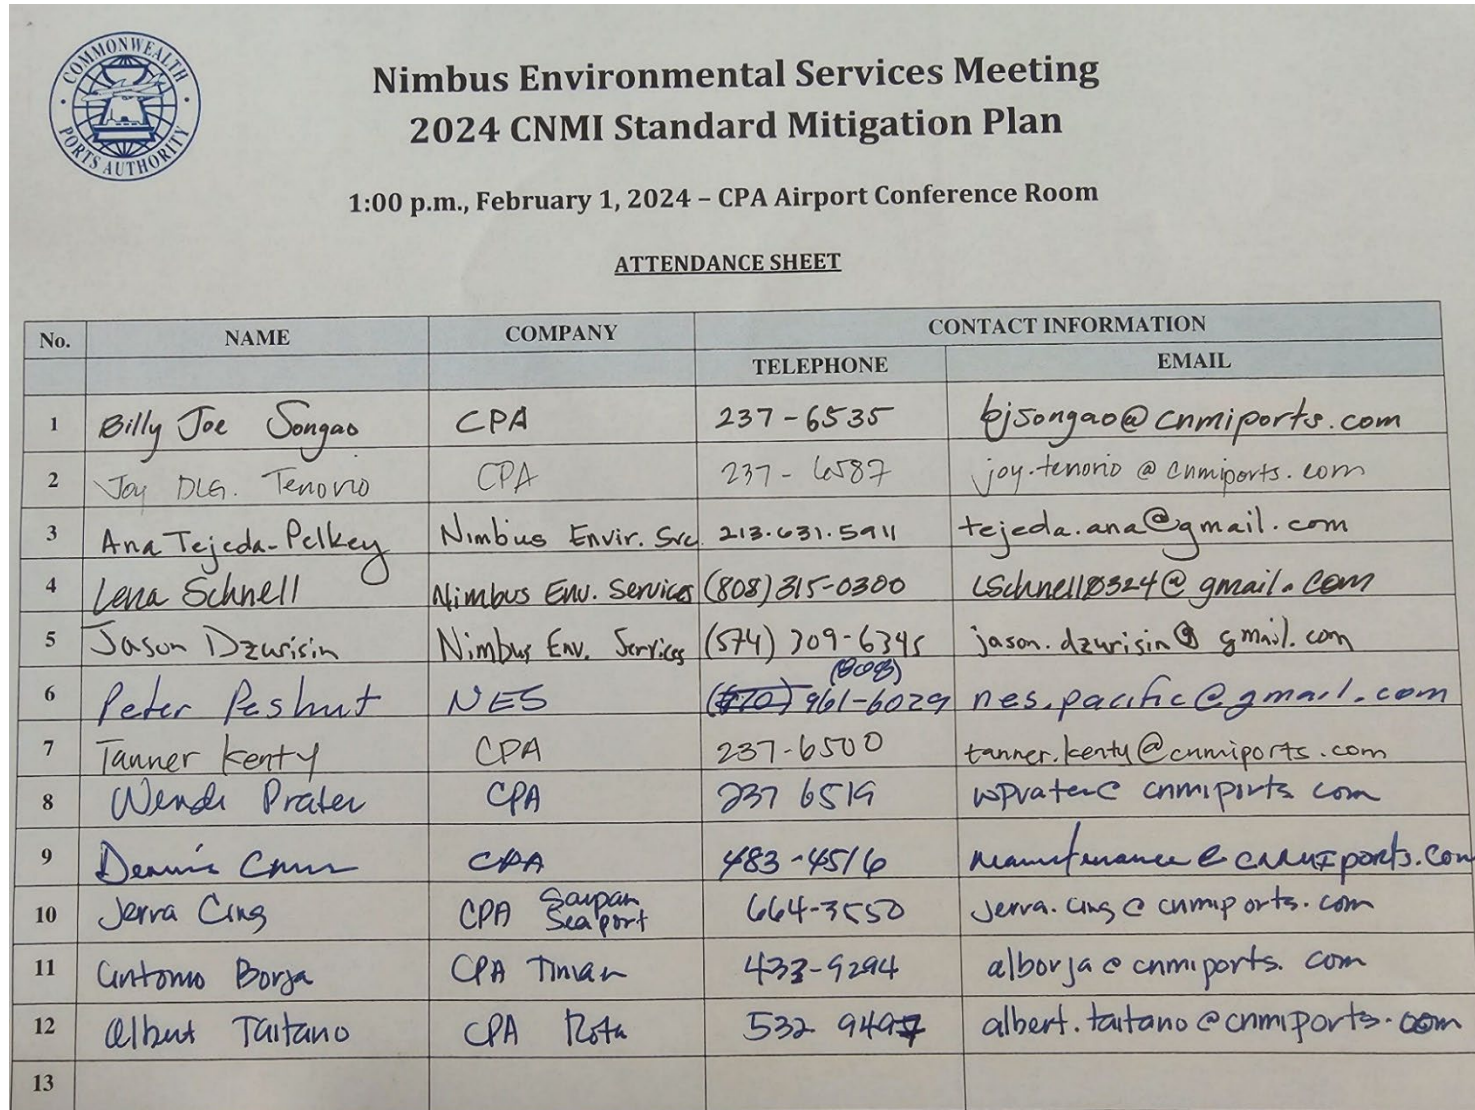 COMMONWEALTH PORTS AUTHORITY
Nimbus Environmental Services Meeting
2024 CNMI Standard Mitigation Plan
1:00 p.m., February 1, 2024 – CPA Airport Conference Room
ATTENDANCE SHEET
No. NAME COMPANY CONTACT INFORMATION
TELEPHONE EMAIL
1 Billy Joe Songao CPA 237-6535 bjsongao@cnmiports.com
2 Joy DLG. Tenorio CPA 237-6587 joy.tenorio@cnmiports.com
3 Ana Tejeda-Pelkey Nimbus Envir. Svc 213.631.5911 tejeda.ana@gmail.com
4 Lena Schnell Nimbus Env. Services (808)315-0300 LSchnell0324@gmail.com
5 Jason Dzurisin Nimbus Env. Services (574) 309-6345 jason.dzurisin@gmail.com
(808)
6 Peter Peshut NES 961-6029 nes.pacific@gmail.com
7 Tanner Kenty CPA 237-6500 tanner.kenty@cnmiports.com
8 Wendi Prater CPA 237 6519 wprater@cnmiports com
9 Dennis CPA 483-4516 maintenance@cnmiports.com
10 Jerra Cing CPA Saipan Seaport 664-3550 jerra.cing@cnmiports.com
11 Antonio Borja CPA Tinian 433-9294 alborja@cnmiports.com
12 Albert Taitano CPA Rota 532 9497 albert.taitano@cnmiports.com
13